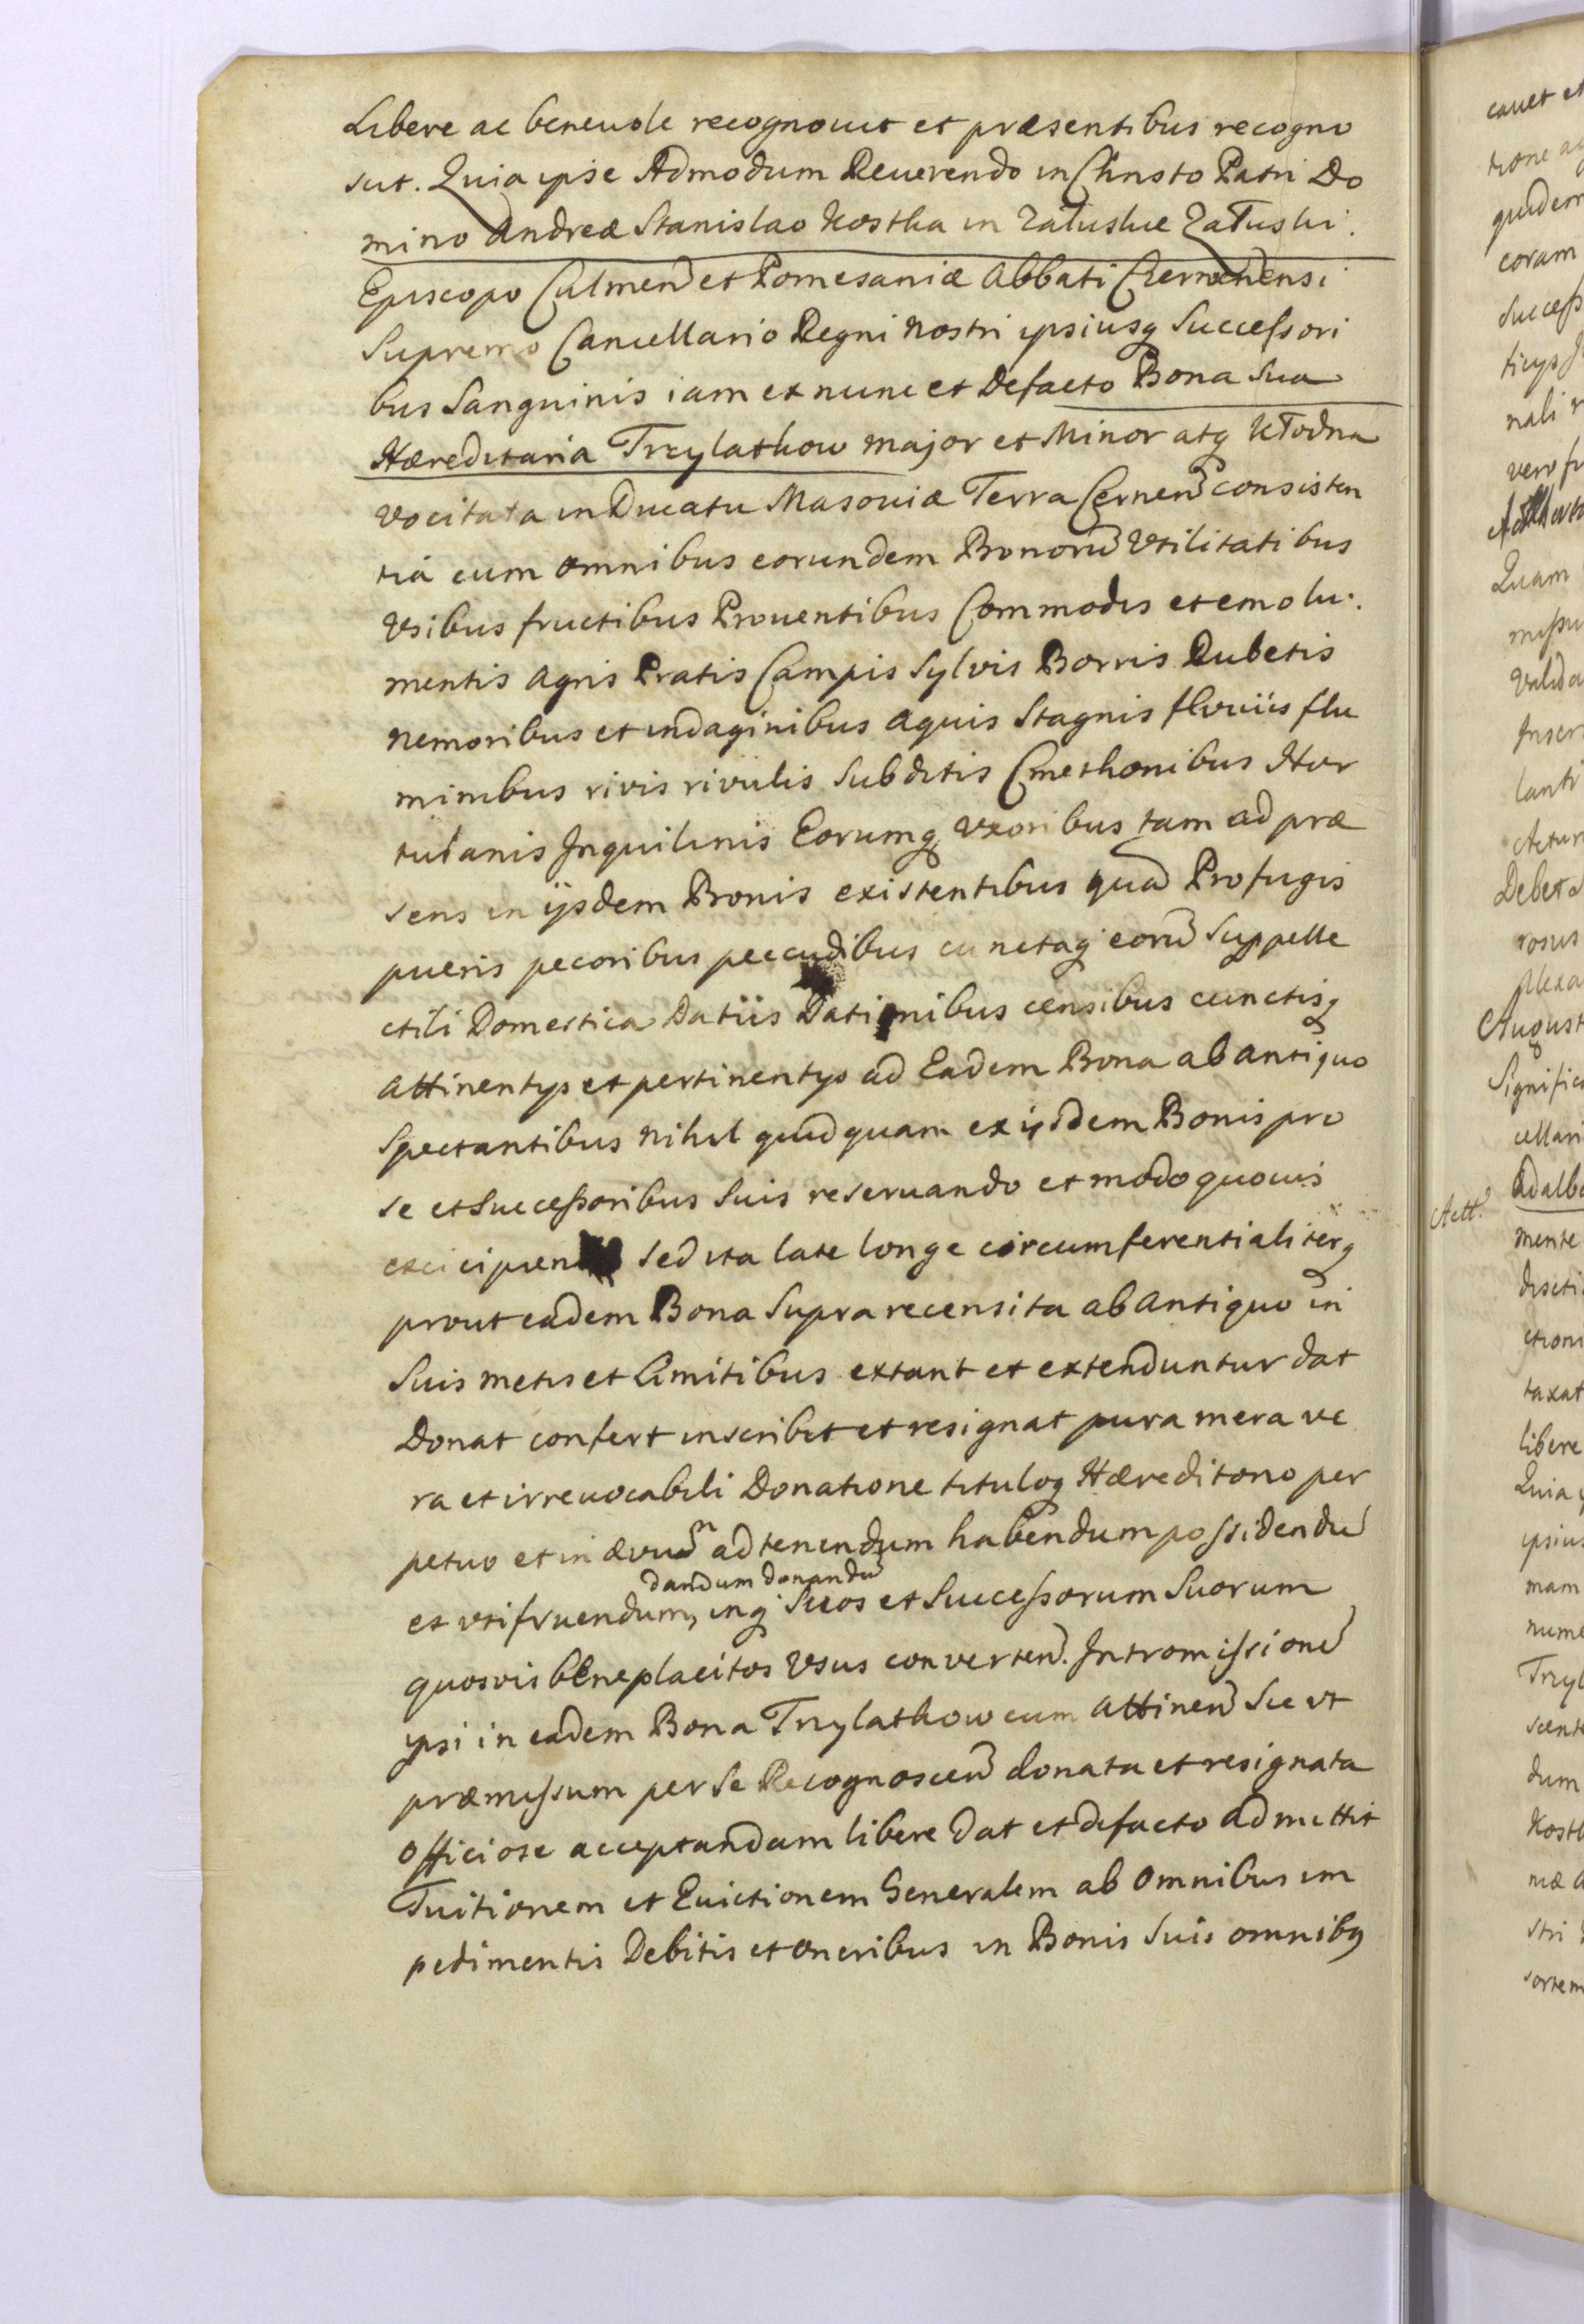 Libere ac beneuole recognouit et præsentibus recogno
scit. Quia ipse Admodum Reuerendo in Christo Patri Do
mino Andreæ Stanislao Kostka in Załuskie Załuski.
Episcopo Culmen̄ et Pomesaniæ Abbati Czerwenensi
Supremo Cancellario Regni Nostri ipsiusq Successori
bus Sanguinis iam ex nunc et Defacto Bona sua
Hæreditaria Trzylatkow Major et Minor atq Kłodna
vocitata in Ducatu Masouiæ Terra Cernen̄ consisten
tia cum omnibus eorundem Bonorū Vtilitatibus
Vsibus fructibus Prouentibus Commodis et emolu.
mentis Agris Pratis Campis Sylvis Borris Rubetis
Nemoribus et indaginibus Aquis Stagnis fluviis flu
minibus rivis rivulis Subditis Cmethonibus Hor
tulanis Inquilinis Eorumq Vxoribus tam ad præ
sens in ijsdem Bonis existentibus quā Profugis
pueris pecoribus peccudibus cunctaq eorū Suppelle
ctili Domestica Datiis Dationibus censibus cunctisq
Attinentys et pertinentys ad Eadem Bona ab antiquo
Spectantibus Nihil quidquam ex ijsdem Bonis pro
se et Successoribus Suis reseruando et modo quouis
sed ita late longe circumferentialiterq
prout eadem Bona Supra recensita ab Antiquo in
Suis metis et limitibus extant et extenduntur dat
Donat confert inscribit et resignat pura mera ve
ra et irreuocabili Donatione tituloq Hæreditario per
petuo et in ævum ad tenendum habendum possidendū
dandum donandū
et vtifruendum, inq Suos et Successorum Suorum
quosvis beneplacitos Vsus converten̄. Intromissionē
ipsi in eadem Bona Trzylatkow cum Attinen̄ Suē vt
præmissum per se Recognoscen̄ donata et resignata
Officiose acceptandam libere dat et defacto admittit
Tuitionem et Euictionem Generalem ab omnibus im
pedimentis Debitis et oneribus in Bonis Suis omnibq
cauet et
quidem
coram
Success
nali
Quam
valida
Inser
Actum
Debet
August
Signific
cellari
Actt.
Adalbe
mente
taxat
libere
Quia
ipsius
mam
nume
Trzyl
dum
Kostk
stri